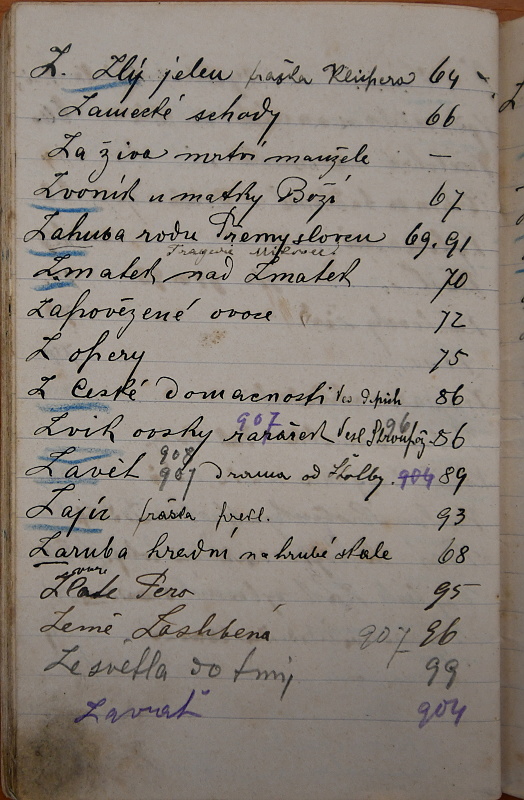 Z. Zlý jelen fraška Klicpera 64
Zamecké schody 66
Za živa mrtví manžele —
Zvoník u matky Boží 67
Zahuba rodu Přemyslovcu 69. 91
Zmatek nad Zmatek 70
Zapovězené ovoce 72
Z opery 75
Z České domacnosti Ves. 86
907 96
Zvik ovsky rarášek Vesl Stroupež. 86
908
Zavět 907 drama od Štolby. 904 89
Zajíc fraška přel. 93
Zaruba hrdní na hrubé skale 68
Zlate Pero 95
Země Zaslíbená 907 96
Ze světla do tmy 99
Zavrať 904